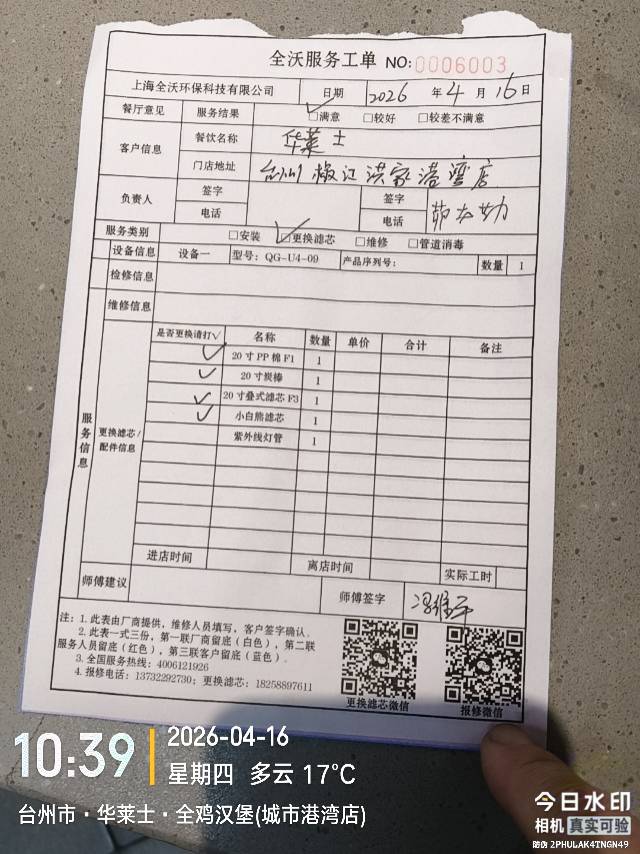 全沃服务工单 NO:0006003
上海全沃环保科技有限公司 日期 2026 年 4 月 16 日
餐厅意见 服务结果 ☑满意 □较好 □较差不满意
客户信息 餐饮名称 华莱士
门店地址 台州椒江洪家港湾店
负责人 签字 签字
电话 电话
服务类别 □安装 ☑更换滤芯 □维修 □管道消毒
设备信息 设备一 型号：QG-U4-09 产品序列号： 数量 1
检修信息
维修信息
服务信息 更换滤芯/配件信息
是否更换请打√ 名称 数量 单价 合计 备注
√ 20寸PP棉F1 1
√ 20寸炭棒 1
√ 20寸叠式滤芯F3 1
√ 小白熊滤芯 1
紫外线灯管 1
进店时间 离店时间 实际工时
师傅建议 师傅签字
注：1. 此表由厂商提供，维修人员填写，客户签字确认。
2. 此表一式三份，第一联厂商留底（白色），第二联
服务人员留底（红色），第三联客户留底（蓝色）。
3. 全国服务热线：4006121926
4. 报修电话：13732292730；更换滤芯：18258897611
更换滤芯微信 报修微信
10:39
2026-04-16
星期四 多云 17℃
台州市·华莱士·全鸡汉堡(城市港湾店)
今日水印
相机 真实可验
防伪 2PHULAK4TNGN49